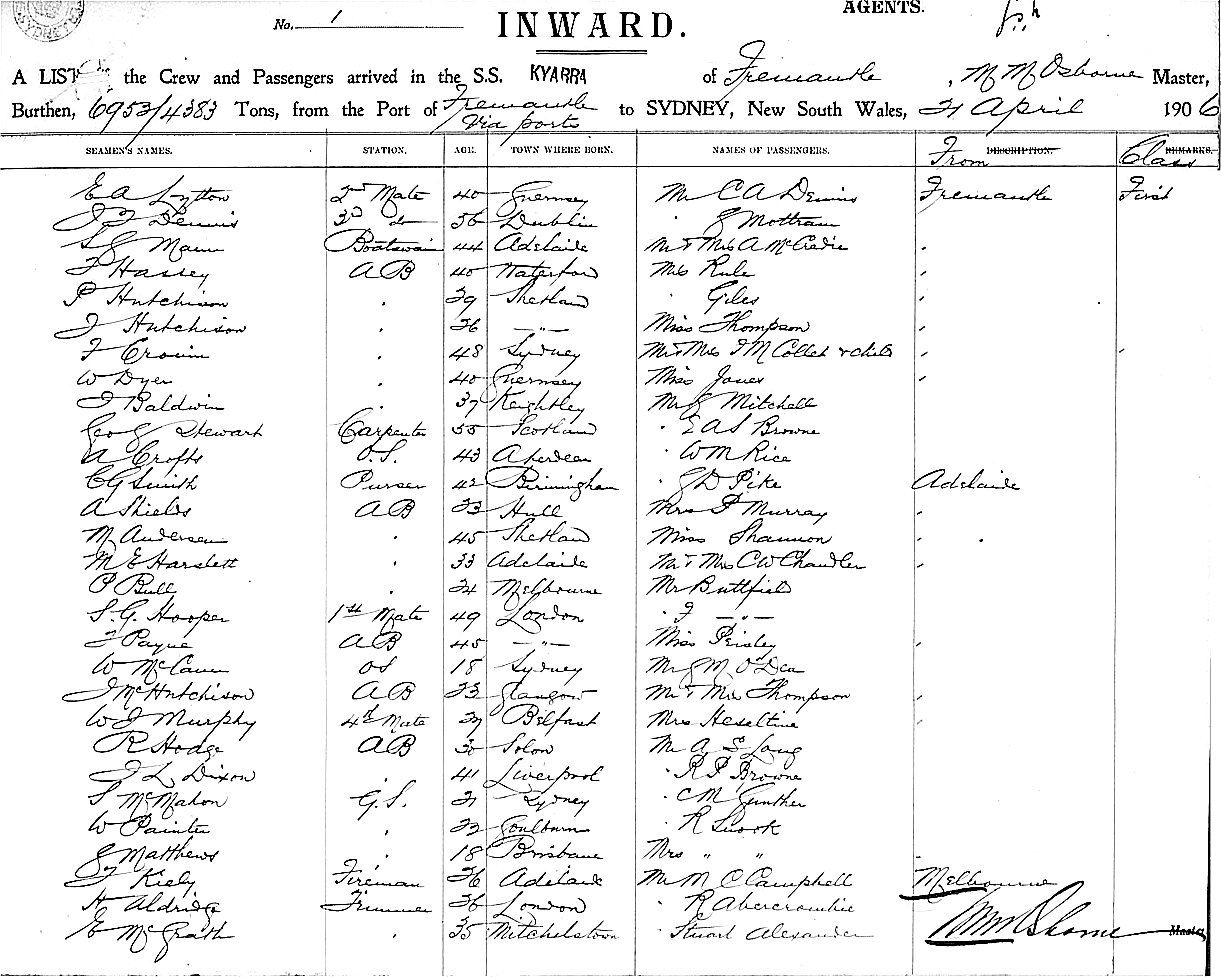 SYDNEY
AGENTS.
No. 1
INWARD.
A LIST the Crew and Passengers arrived in the S.S. KYARRA of Fremantle, M M Osborne Master,
Burthen, 6953/4383 Tons, from the Port of Fremantle Via ports to SYDNEY, New South Wales, 21 April 1906
SEAMEN'S NAMES. STATION. AGE. TOWN WHERE BORN. NAMES OF PASSENGERS. From DESCRIPTION. Class REMARKS.
E A Lytton 2nd Mate 40 Guernsey Mr C A Dennis Fremantle First
J F Dennis 3rd do 36 Dublin " J Mottram
S G Mann Boatswain 44 Adelaide Mr & Mrs A McCradie "
F Hassey AB 40 Waterford Mrs Rule "
P Hutchison " 29 Shetland " Giles "
J Hutchison " 26 —"— Miss Thompson "
F Cronin " 48 Sydney Mr & Mrs J M Collet & child " "
W Dyer " 40 Guernsey Miss Jones "
J Baldwin " 37 Keightley Mr J Mitchell
Geo G Stewart Carpenter 55 Scotland " E A S Browne
A Crofts O.S. 43 Aberdeen " W M Rice
C G Smith Purser 42 Birmingham " G D Pike Adelaide
A Shields AB 23 Hull Mrs P Murray "
M Andersen " 45 Shetland Miss Shannon "
M E Harslett " 33 Adelaide Mr & Mrs C W Chandler "
P Bull " 24 Melbourne Mr Buttfield
S.G. Hooper 1st Mate 49 London " F —"—
F Payne AB 45 —"— Miss Peisley "
W McCann OS 18 Sydney Mr J M O'Dea
J McHutchison AB 23 Glasgow Mr & Mrs Thompson "
W J Murphy 4th Mate 27 Belfast Mrs Heseltine "
R Hodge AB 30 Solon Mr A S Lang
J L Dixon 41 Liverpool " R P Browne
S McMahon G.S. 21 Sydney " C M Gunther
W Painter " 22 Goulburn " R Snook
G Matthews " 18 Brisbane Mrs " "
F Kiely Fireman 26 Adelaide Mr M C Campbell Melbourne
H Aldridge Trimmer 26 London " R Abercrombie
E McGrath " 35 Mitchelstown " Stuart Alexander M M Osborne Master